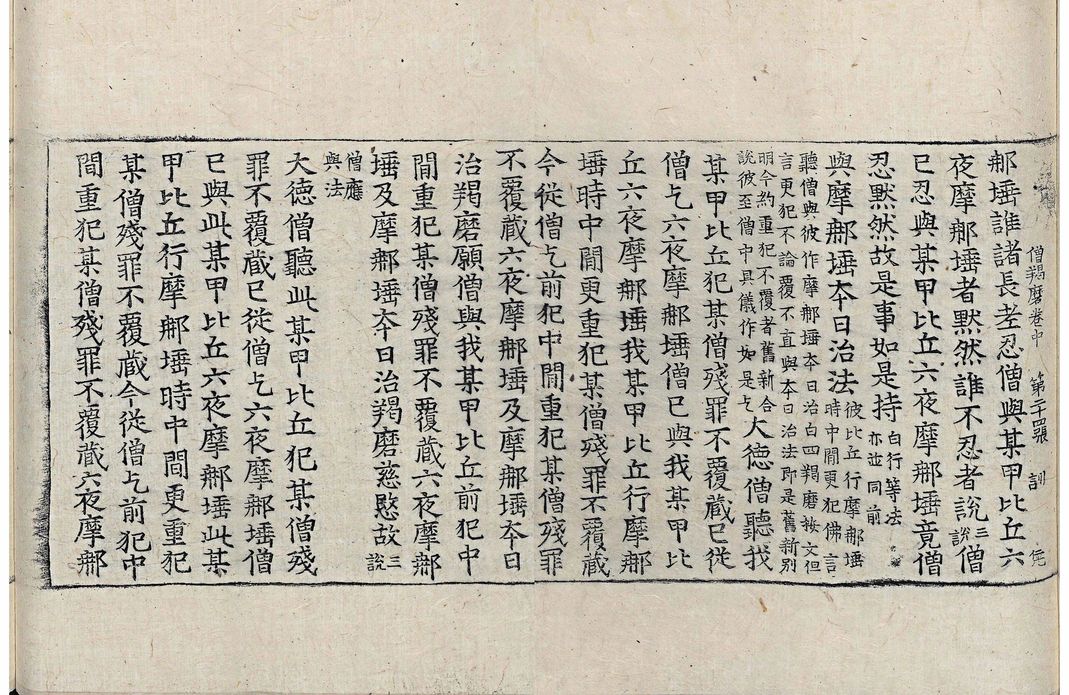 僧羯磨卷中 第二十四張 訓
那埵誰諸長老忍僧與某甲比丘六
夜摩那埵者默然誰不忍者說三說僧
已忍與某甲比丘六夜摩那埵竟僧
忍默然故是事如是持白行等法
亦並同前
與摩那埵本日治法彼比丘行摩那埵
時中間更犯佛言
聽僧與彼作摩那埵本日治白四羯磨按文但
言更犯不論覆不宜與本日治法即是舊新別
明今約重犯不覆者舊新合
說彼至僧中具儀作如是乞大德僧聽我
某甲比丘犯某僧殘罪不覆藏已從
僧乞六夜摩那埵僧已與我某甲比
丘六夜摩那埵我某甲比丘行摩那
埵時中間更重犯某僧殘罪不覆藏
今從僧乞前犯中間重犯某僧殘罪
不覆藏六夜摩那埵及摩那埵本日
治羯磨願僧與我某甲比丘前犯中
間重犯某僧殘罪不覆藏六夜摩那
埵及摩那埵本日治羯磨慈愍故三說
僧應
與法
大德僧聽此某甲比丘犯某僧殘
罪不覆藏已從僧乞六夜摩那埵僧
已與此某甲比丘六夜摩那埵此某
甲比丘行摩那埵時中間更重犯
某僧殘罪不覆藏今從僧乞前犯中
間重犯某僧殘罪不覆藏六夜摩那